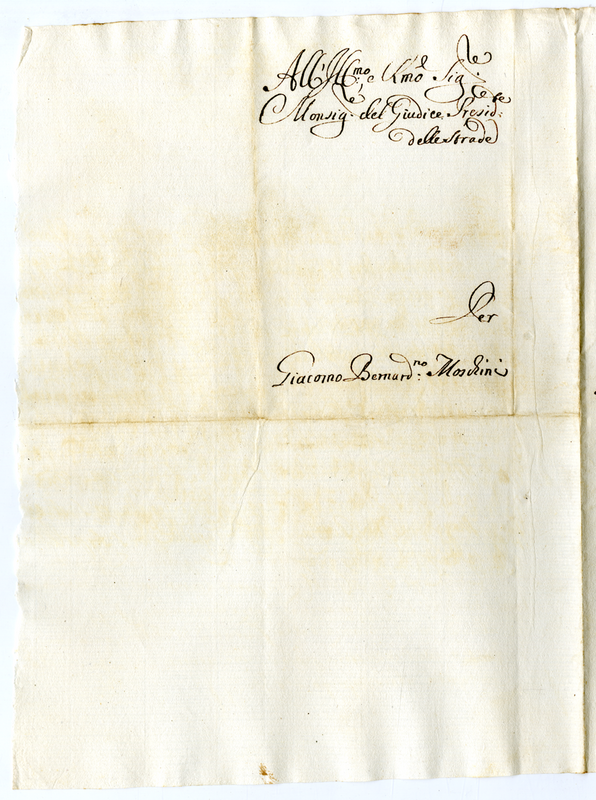 All'Ill:mo e R:mo Sig:re
Monsig:re del Giudice Presid:te
delle strade
Per
Giacomo Bernard:no Moschini